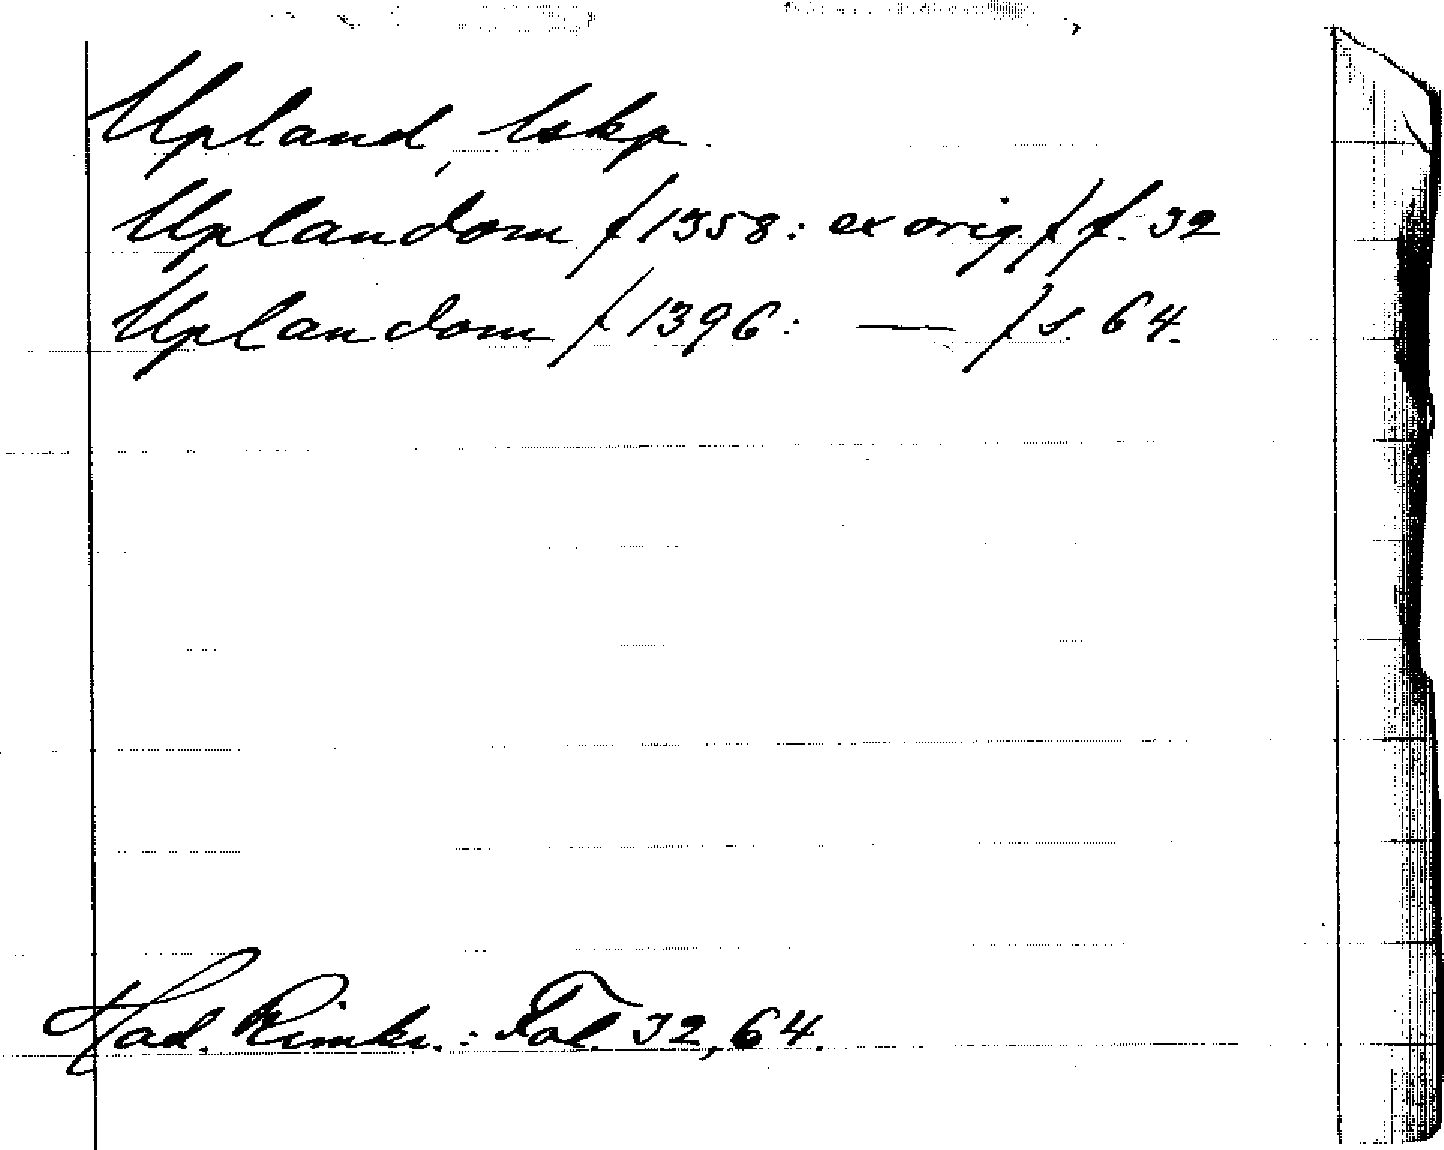 Upland, lskp.
Uplandom /1358: ex orig./ f. 32
Uplandom /1396: — / s. 64.
Had. Rimkr.: Fol. 32, 64.